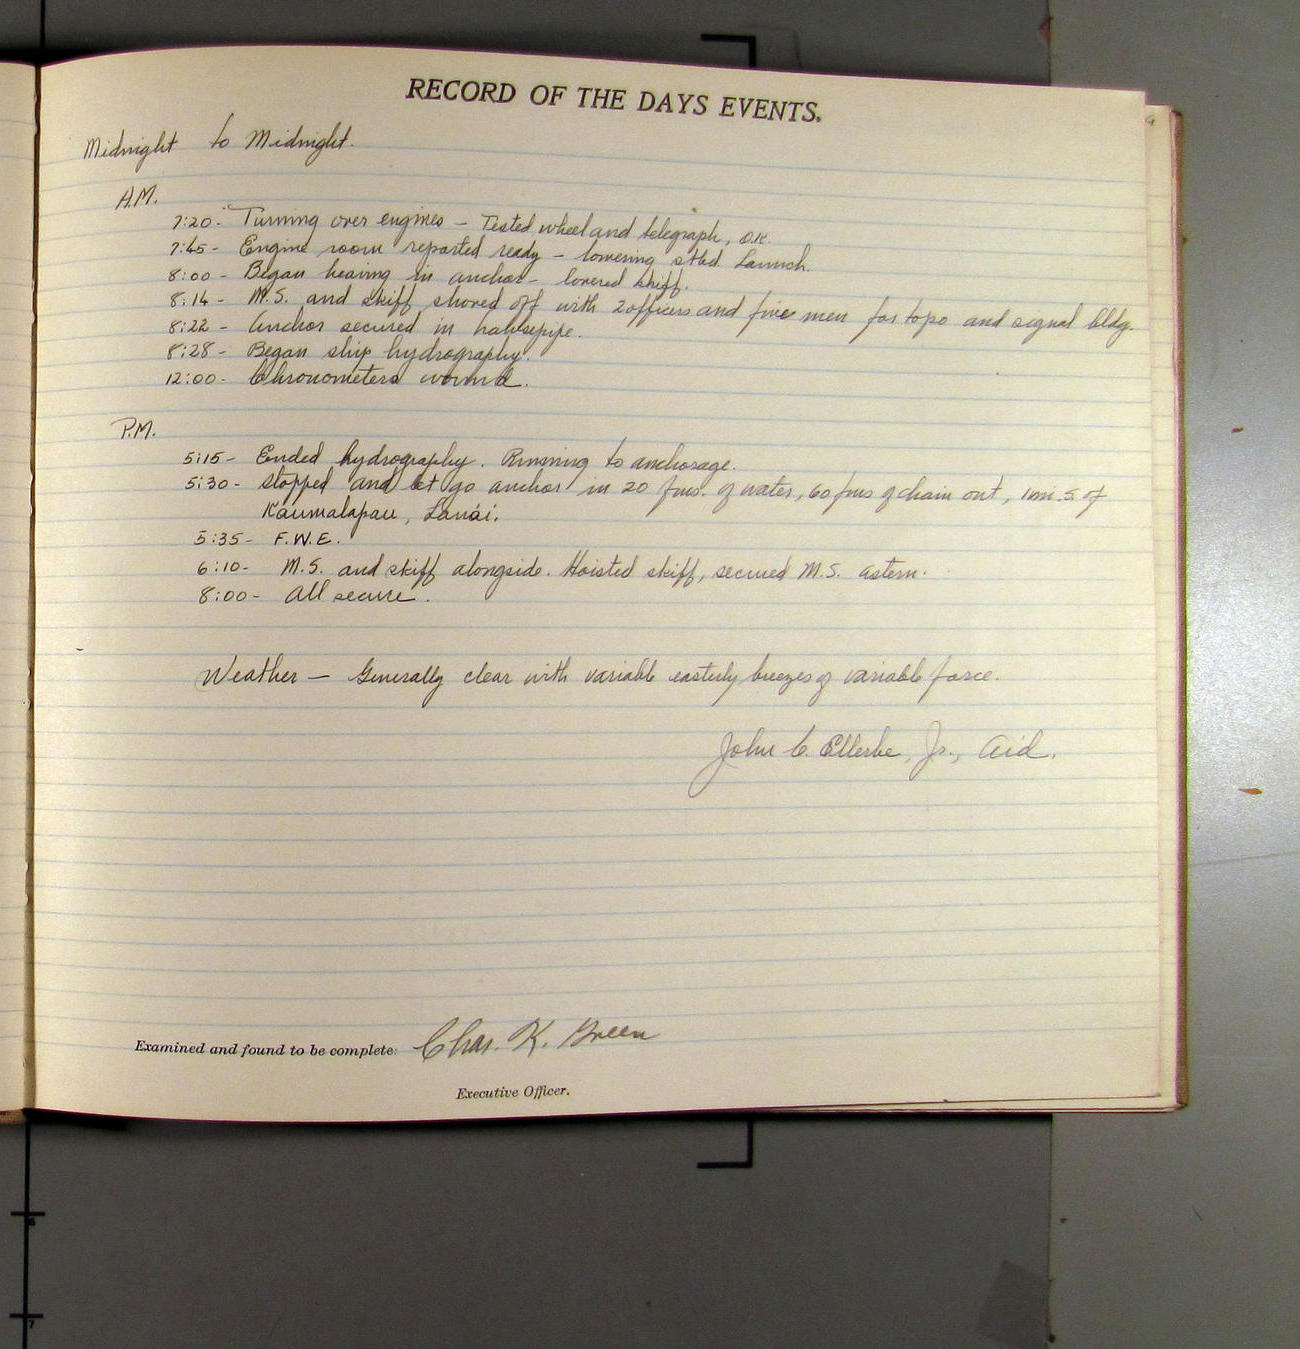 RECORD OF THE DAYS EVENTS.
Midnight to Midnight.
A.M.
7:20- Turning over engines - Tested wheel and telegraph, O.K.
7:45- Engine room reported ready - lowering stbd Launch.
8:00- Began heaving in anchor - lowered skiff.
8:14- M.S. and skiff shoved off with 2 officers and five men for topo and signal bldg.
8:22- Anchor secured in hawsepipe.
8:28- Began ship hydrography.
12:00- Chronometers wound.
P.M.
5:15- Ended hydrography. Running to anchorage.
5:30- Stopped and let go anchor in 20 fms. of water, 60 fms of chain out, 1 mi. S. of
Kaumalapau, Lanai.
5:35- F.W.E.
6:10- M.S. and skiff alongside. Hoisted skiff, secured M.S. astern.
8:00- All secure.
Weather - Generally clear with variable easterly breezes of variable force.
John C. Ellerbe, Jr., Aid.
Examined and found to be complete: Chas. K. Green
Executive Officer.